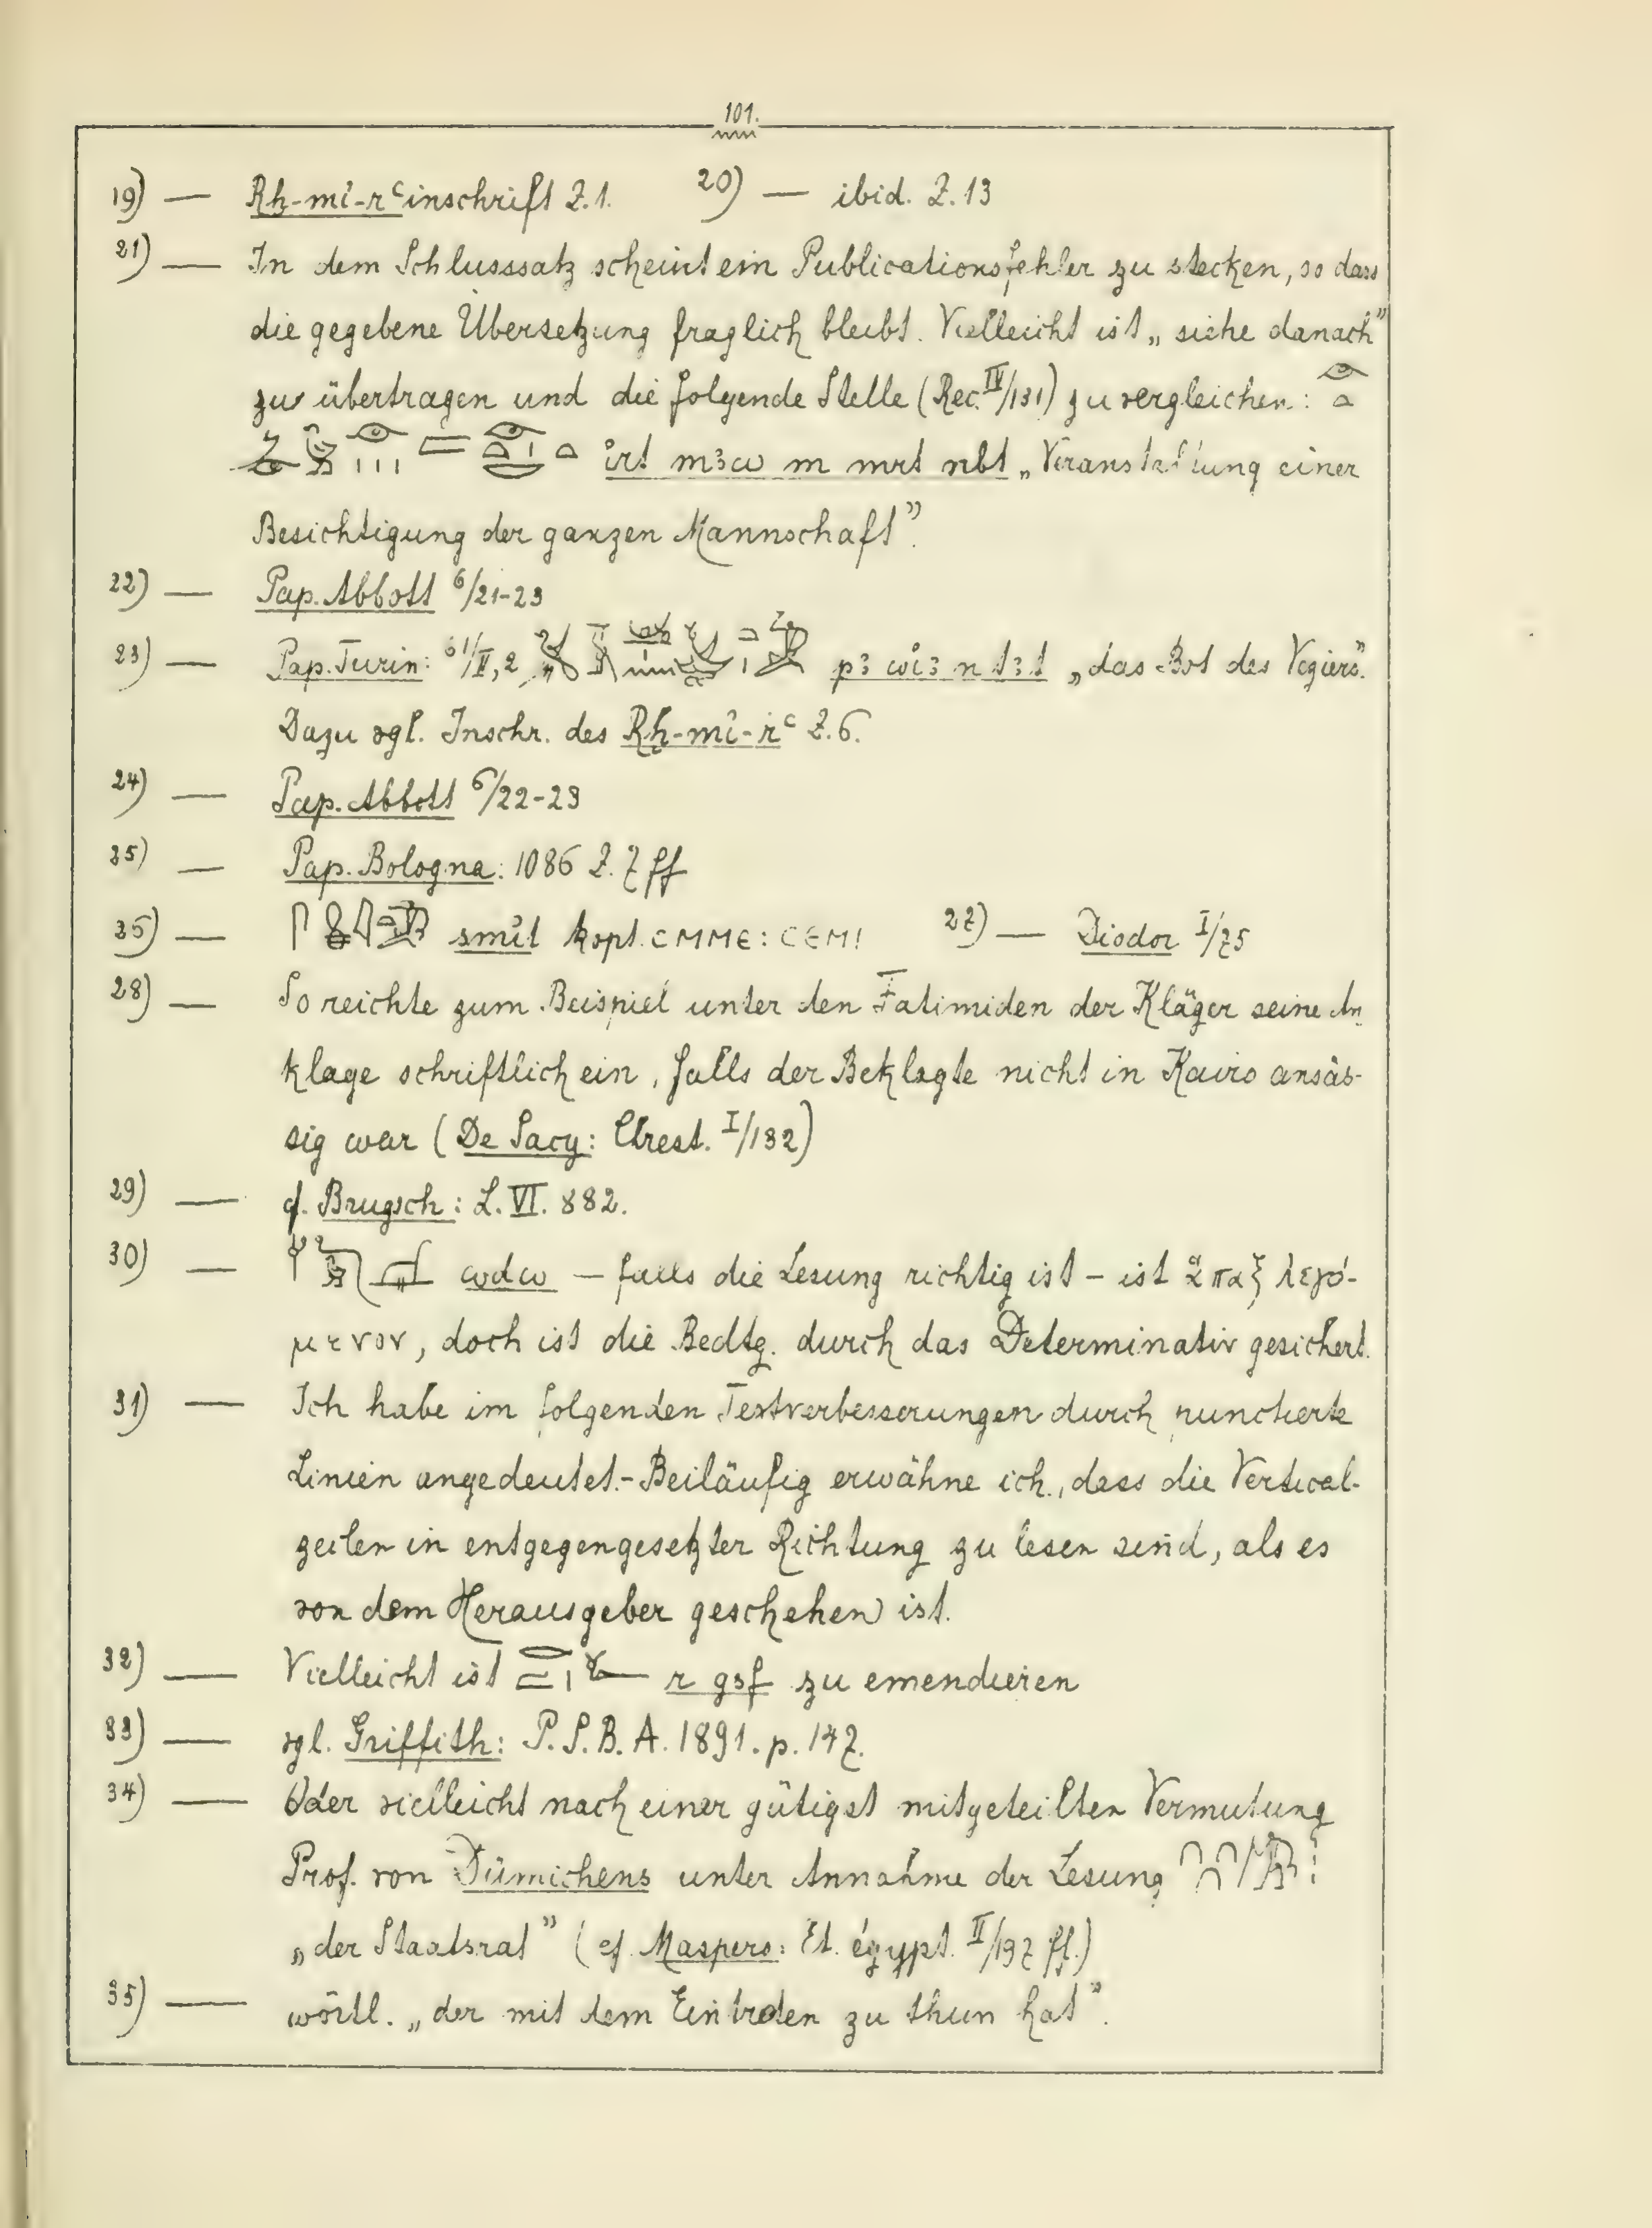 101.
19) — Rḫ-mi-rꜥinschrift Z.1. 20) — ibid. Z.13
21) — In dem Schlusssatz scheint ein Publicationsfehler zu stecken, so dass
die gegebene Übersetzung fraglich bleibt. Vielleicht ist „siehe danach”
zu übertragen und die folgende Stelle (Rec. IV/131) zu vergleichen:
irt m3w m mrt nbt „Veranstaltung einer
Besichtigung der ganzen Mannschaft”.
22) — Pap. Abbott 6/21-23
23) — Pap. Turin: 61/II,2 p3 wi3 n t3t „das Bot des Veziers”.
Dazu vgl. Inschr. des Rḫ-mi-rꜥ Z.6.
24) — Pap. Abbott 6/22-23
25) — Pap. Bologna: 1086 Z. 7 ff
26) — smit kopt. CMME: CEMI 27) — Diodor I/75
28) — So reichte zum Beispiel unter den Fatimiden der Kläger seine An
klage schriftlich ein, falls der Beklagte nicht in Kairo ansäs-
sig war (De Sacy: Chrest. I/132)
29) — cf. Brugsch: L. VI. 882.
30) — wdw — falls die Lesung richtig ist — ist ἅπαξ λεγό-
μενον, doch ist die Bedtg. durch das Determinativ gesichert.
31) — Ich habe im folgenden Textverbesserungen durch punctierte
Linien angedeutet.- Beiläufig erwähne ich, dass die Vertical-
zeilen in entgegengesetzter Richtung zu lesen sind, als es
von dem Herausgeber geschehen ist.
32) — Vielleicht ist r gsf zu emendieren
33) — vgl. Griffith: P.S.B.A. 1891. p. 147.
34) — Oder vielleicht nach einer gütigst mitgeteilten Vermutung
Prof. von Dümichens unter Annahme der Lesung
„der Staatsrat” (cf. Maspero: Et. égypt. II/197 ff.)
35) — wörtl. „der mit dem Eintreten zu thun hat”.